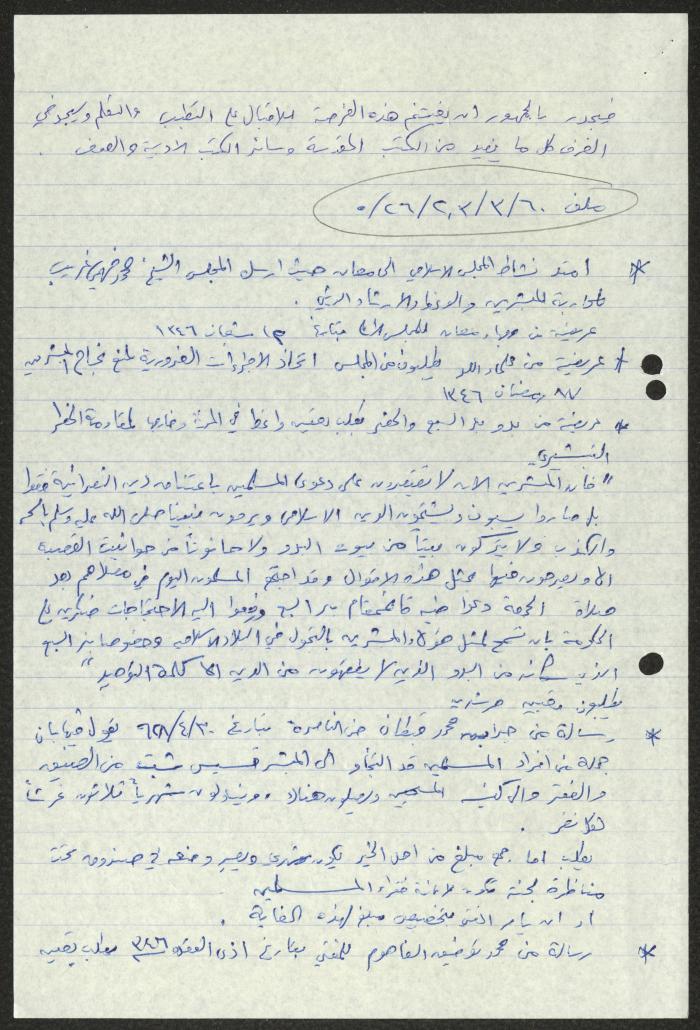 فيجدر بالجمهور ان يغتنم هذه الفرصة للاقبال على التطبب والتعلم وسيجد في
الغرف كل ما يفيد من الكتب المقدسة وسائر الكتب الادبية والصحف .
ملف ٦٠/٣/٢,٣/٢٦/٠
* امتد نشاط المجلس الاسلامي الى معان حيث ارسل المجلس الشيخ محمد غريب
لمحاربة المبشرين والوعظ والارشاد الديني .
عريضة من وجهاء معان للمجلس بتاريخ شعبان ١٣٤٦
* عريضة من علماء اللد يطلبون من المجلس اتخاذ الاجراءات الضرورية لمنع نجاح المبشرين
رمضان ١٣٤٦
* عريضة من بدو بئر السبع والحضر بطلب تعيين واعظ في المدينة وخارجها لمقاومة الخطر
التبشيري
" فان المبشرين الان لا يقتصرون على دعوى المسلمين باعتناق دين النصرانية فقط
بل صاروا يسبون ويشتمون الدين الاسلامي ويرمون نبينا صلى الله عليه وسلم بالسحر
والكذب ولا يتركون بيتاً من بيوت البدو ولا حانوتاً من حوانيت القصبة
الا ويصرحون فيها بمثل هذه الاقوال وقد اجتمع المسلمون اليوم في مصلاهم بعد
صلاة الجمعة دعوا فيه قائمقام بئر السبع ورفعوا اليه الاحتجاجات منكرين على
الحكومة بان تسمح لمثل هؤلاء المبشرين بالتجول في البلاد الاسلامية وخصوصا بئر السبع
الذي سكانه من البدو الذين لا يفقهون من الدين الا كلمة التوحيد "
يطلبون تعيين مرشدين
* رسالة من محمد قبطان من الناصرة بتاريخ ٣٠/٤/٩٢٨ يقول فيها بان
جملة من افراد المسلمين قد التجأوا الى المبشر قسيس شبت من الضيق
والفقر والى كنيسة المسيحيين ويصلون هناك ويتناولون شهرياً ثلاثون غرشاً
لكل نفر .
يطلب اما جمع مبلغ من اهل الخير يكون شهري ويصير وضعه في صندوق تحت
مناظرة لجنة تكون لاعانة فقراء المسلمين
او ان يأمر المفتي بتخصيص مبلغ لهذه الغاية .
* رسالة من محمد توفيق الفاهوم للمفتي بتاريخ ذي القعدة ١٣٤٦ يطلب تعيين